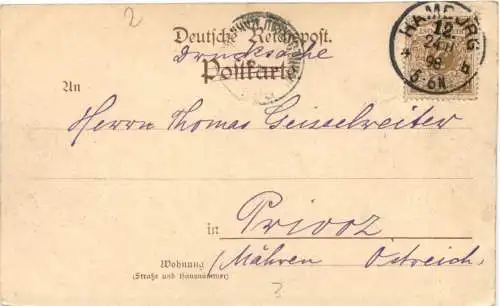 2
Deutsche Reichspost.
Drucksache
Postkarte
HAMBURG
12
24 11
98
5-6N
* b
An
Herrn Thomas Geisselreiter
in Privoz
Wohnung
(Straße und Hausnummer)
/Mähren Östreich/